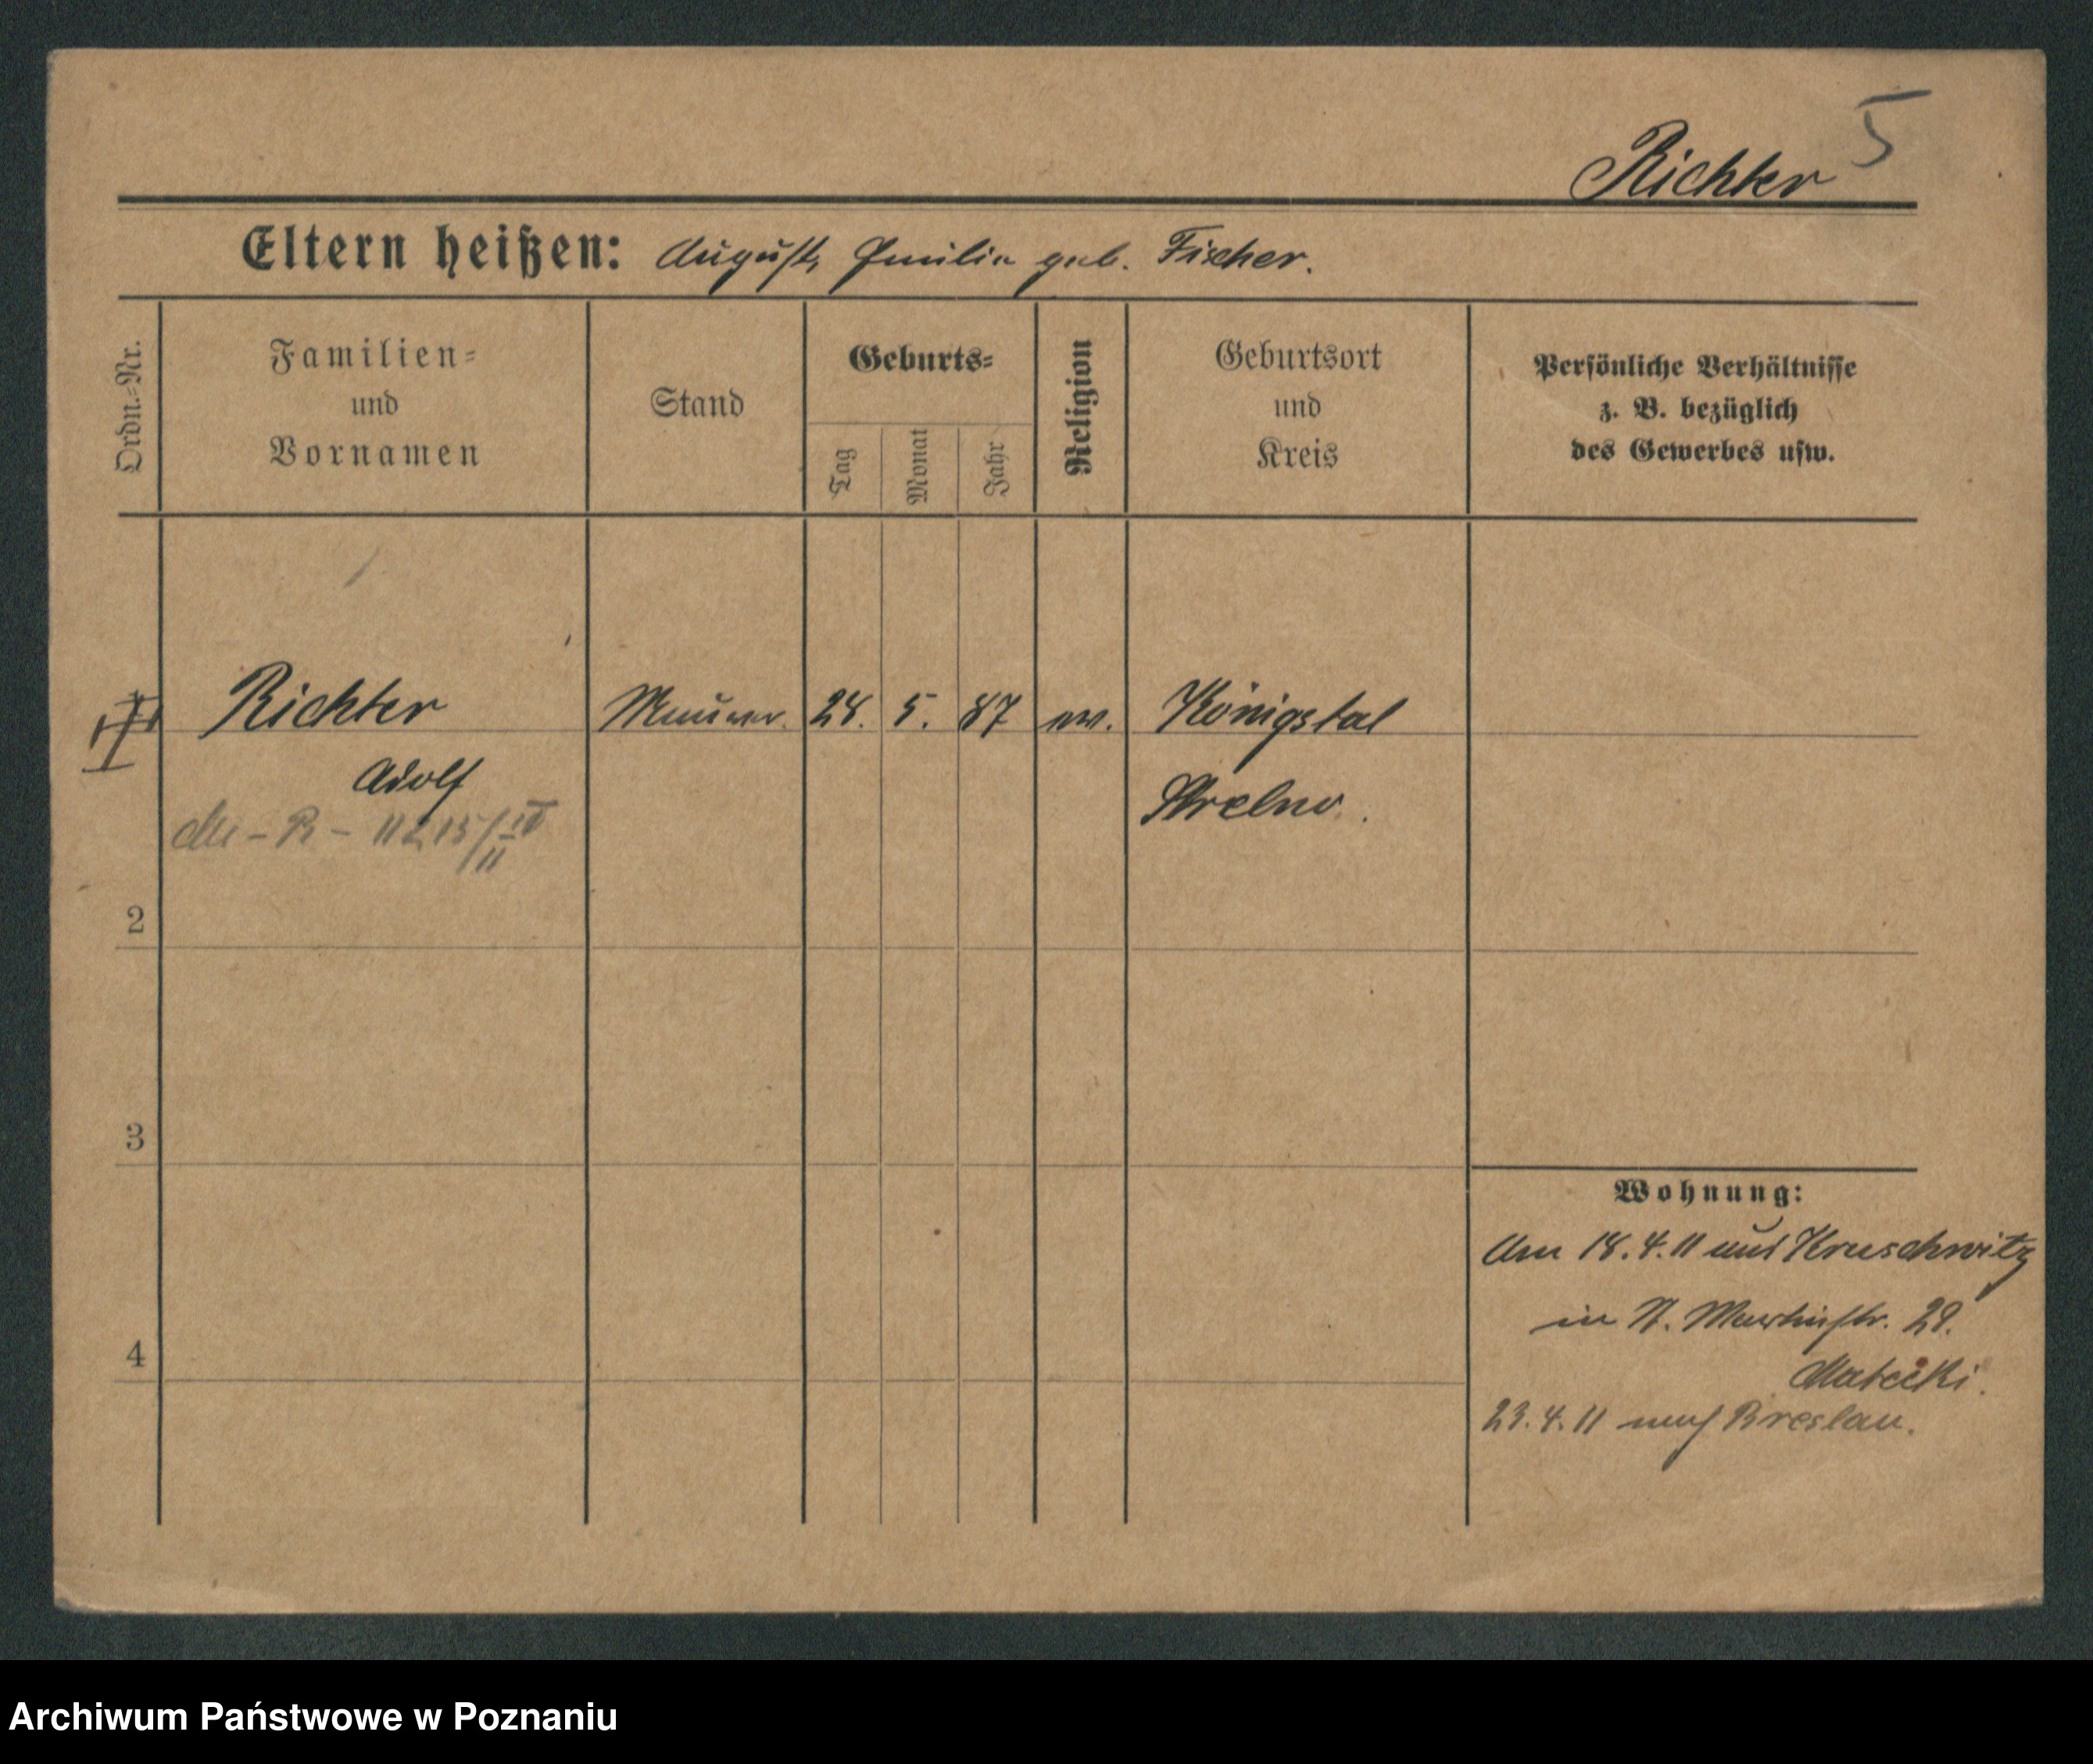 Richter 5
Eltern heißen: August, Emilie geb. Fischer.
Ordn.=Nr.
Familien=
und
Vornamen
Stand
Geburts=
Tag
Monat
Jahr
Religion
Geburtsort
und
Kreis
Persönliche Verhältnisse
z. B. bezüglich
des Gewerbes usw.
Richter Maurer. 28. 5. 87 ev. Königstal
Adolf Strelno.
2
3
4
Wohnung:
Am 18.4.11 aus Kruschwitz
in St. Martinstr. 28.
Matecki.
23.4.11 nach Breslau.
Archiwum Państwowe w Poznaniu